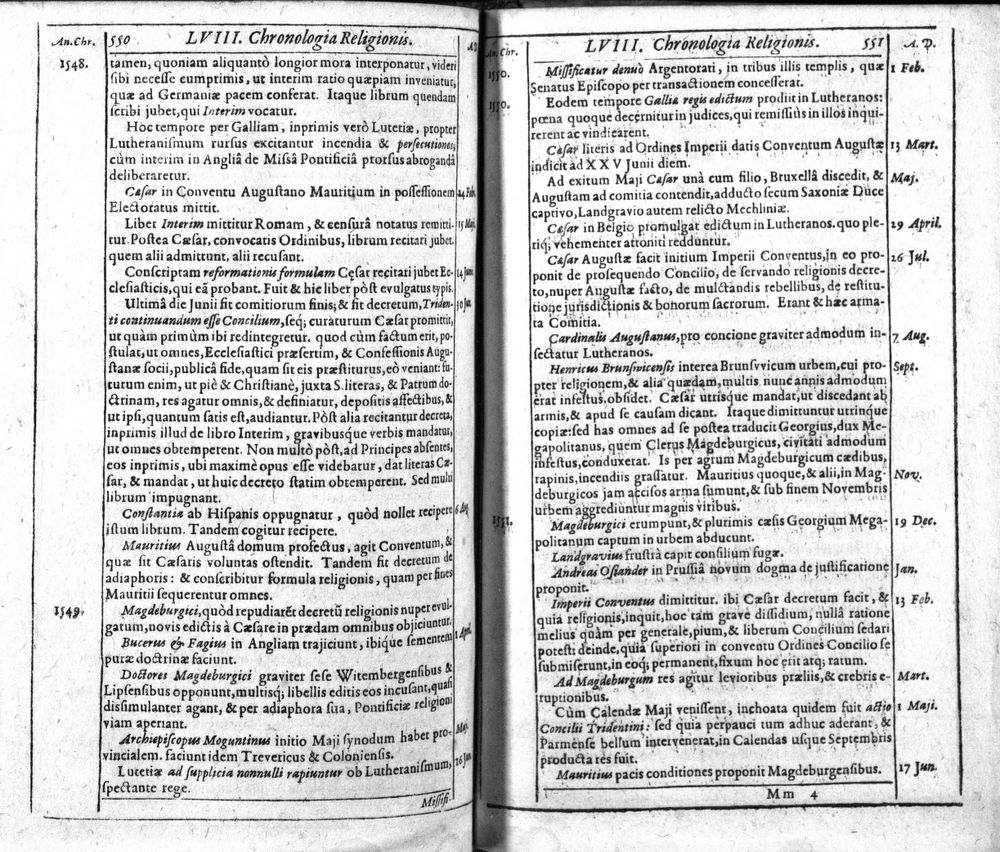 An. Chr. 550 LVIII. Chronologia Religionis.
1548. tamen, quoniam aliquantò longior mora interponatur, videri
sibi necesse cumprimis, ut interim ratio quæpiam inveniatur,
quæ ad Germaniæ pacem conferat. Itaque librum quendam
scribi jubet, qui Interim vocatur.
Hoc tempore per Galliam, inprimis verò Lutetiæ, propter
Lutheranismum rursus excitantur incendia & persecutiones;
cùm interim in Angliâ de Missâ Pontificiâ prorsus abrogandâ
deliberaretur.
Cæsar in Conventu Augustano Mauritium in possessionem 24 Feb.
Electoratus mittit.
Liber Interim mittitur Romam, & censurâ notatus remitti- 15 Maj.
tur. Postea Cæsar, convocatis Ordinibus, librum recitari jubet.
quem alii admittunt, alii recusant.
Conscriptam reformationis formulam Cęsar recitari jubet Ec- 14 Juni.
clesiasticis, qui eā probant. Fuit & hic liber pòst evulgatus typis.
Ultimâ die Junii fit comitiorum finis; & fit decretum, Triden- 30 Jun.
ti continuandum esse Concilium, seq; curaturum Cæsar promittit,
ut quàm primùm ibi redintegretur. quod cùm factum erit, po-
stulat, ut omnes, Ecclesiastici præsertim, & Confessionis Augu-
stanæ socii, publicâ fide, quam sit eis præstiturus, eò veniant: fu-
turum enim, ut piè & Christianè, juxta S. literas, & Patrum do-
ctrinam, res agatur omnis, & definiatur, depositis affectibus, &
ut ipsi, quantum satis est, audiantur. Pòst alia recitantur decreta,
inprimis illud de libro Interim, gravibusque verbis mandatur,
ut omnes obtemperent. Non multò pòst, ad Principes absentes,
eos inprimis, ubi maximè opus esse videbatur, dat literas Cæ-
sar, & mandat, ut huic decreto statim obtemperent. Sed multi
librum impugnant.
Constantia ab Hispanis oppugnatur, quòd nollet recipere 6 Aug.
istum librum. Tandem cogitur recipere.
Mauritius Augustâ domum profectus, agit Conventum, &
quæ sit Cæsaris voluntas ostendit. Tandem fit decretum de
adiaphoris: & conscribitur formula religionis, quam per fines
Mauritii sequerentur omnes.
1549. Magdeburgici, quòd repudiarēt decretū religionis nuper evul-
gatum, novis edictis à Cæsare in prædam omnibus objiciuntur.
Bucerus & Fagius in Angliam trajiciunt, ibique sementem 1 Apri.
puræ doctrinæ faciunt.
Doctores Magdeburgici graviter sese Witembergensibus &
Lipsensibus opponunt, multisq; libellis editis eos incusant, quasi
dissimulanter agant, & per adiaphora sua, Pontificiæ religioni
viam aperiant.
Archiepiscopus Moguntinus initio Maji synodum habet pro- Maj.
vincialem. faciunt idem Trevericus & Coloniensis.
Lutetiæ ad supplicia nonnulli rapiuntur ob Lutheranismum, 26 Jun.
spectante rege.
Missifi-
An. Chr. LVIII. Chronologia Religionis. 551 A. D.
1550. Missificatur denuò Argentorati, in tribus illis templis, quæ 1 Feb.
Senatus Episcopo per transactionem concesserat.
1550. Eodem tempore Galliæ regis edictum prodiit in Lutheranos:
pœna quoque decernitur in judices, qui remissiùs in illos inqui-
rerent ac vindicarent.
Cæsar literis ad Ordines Imperii datis Conventum Augustæ 13 Mart.
indicit ad XXV Junii diem.
Ad exitum Maji Cæsar unà cum filio, Bruxellâ discedit, & Maj.
Augustam ad comitia contendit, adducto secum Saxoniæ Duce
captivo, Landgravio autem relicto Mechliniæ.
Cæsar in Belgio promulgat edictum in Lutheranos. quo ple- 29 April.
riq; vehementer attoniti redduntur.
Cæsar Augustæ facit initium Imperii Conventus, in eo pro- 26 Jul.
ponit de prosequendo Concilio, de servando religionis decre-
to, nuper Augustæ facto, de mulctandis rebellibus, de restitu-
tione jurisdictionis & bonorum sacrorum. Erant & hæc arma-
ta Comitia.
Cardinalis Augustanus, pro concione graviter admodum in- 7 Aug.
sectatur Lutheranos.
Henricus Brunsvicensis interea Brunsvvicum urbem, cui pro- Sept.
pter religionem, & alia quædam, multis nunc annis admodum
erat infestus, obsidet. Cæsar utrisque mandat, ut discedant ab
armis, & apud se causam dicant. Itaque dimittuntur utrinque
copiæ: sed has omnes ad se postea traducit Georgius, dux Me-
gapolitanus, quem Clerus Magdeburgicus, civitati admodum
infestus, conduxerat. Is per agrum Magdeburgicum cædibus,
rapinis, incendiis grassatur. Mauritius quoque, & alii, in Mag- Nov.
deburgicos jam accisos arma sumunt, & sub finem Novembris
urbem aggrediuntur magnis viribus.
1551. Magdeburgici erumpunt, & plurimis cæsis Georgium Mega- 19 Dec.
politanum captum in urbem abducunt.
Landgravius frustrà capit consilium fugæ.
Andreas Osiander in Prussiâ novum dogma de justificatione Jan.
proponit.
Imperii Conventus dimittitur. ibi Cæsar decretum facit, & 13 Feb.
quia religionis, inquit, hoc tam grave dissidium, nullâ ratione
melius quàm per generale, pium, & liberum Concilium sedari
potest: deinde, quia superiori in conventu Ordines Concilio se
submiserunt, in eoq; permanent, fixum hoc erit atq; ratum.
Ad Magdeburgum res agitur levioribus præliis, & crebris e- Mart.
ruptionibus.
Cùm Calendæ Maji venissent, inchoata quidem fuit actio 1 Maji.
Concilii Tridentini: sed quia perpauci tum adhuc aderant, &
Parmense bellum intervenerat, in Calendas usque Septembris
producta res fuit.
Mauritius pacis conditiones proponit Magdeburgensibus. 17 Jun.
Mm 4